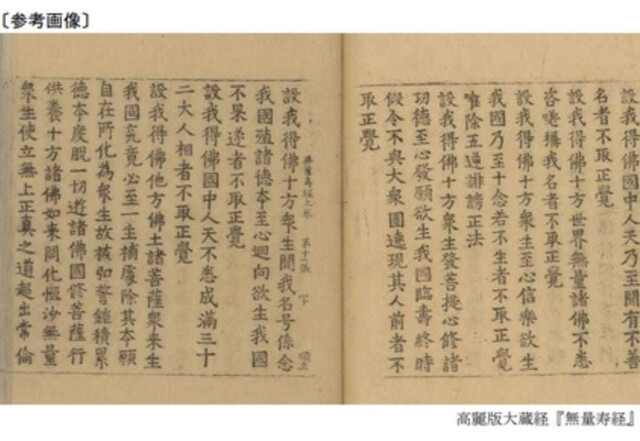 〔参考画像〕
設我得佛國中人天乃至聞有不善
名者不取正覺
設我得佛十方世界無量諸佛不悉
咨嗟稱我名者不取正覺
設我得佛十方衆生至心信樂欲生
我國乃至十念若不生者不取正覺
唯除五逆誹謗正法
設我得佛十方衆生發菩提心修諸
功德至心發願欲生我國臨壽終時
假令不與大衆圍遶現其人前者不
取正覺
無量壽經上卷 第十一張 下
設我得佛十方衆生聞我名号係念
我國殖諸德本至心迴向欲生我國
不果遂者不取正覺
設我得佛國中人天不悉成滿三十
二大人相者不取正覺
設我得佛他方佛土諸菩薩衆來生
我國究竟必至一生補處除其本願
自在所化爲衆生故被弘誓鎧積累
德本度脫一切遊諸佛國修菩薩行
供養十方諸佛如來開化恒沙無量
衆生使立無上正真之道超出常倫
高麗版大蔵経『無量寿経』